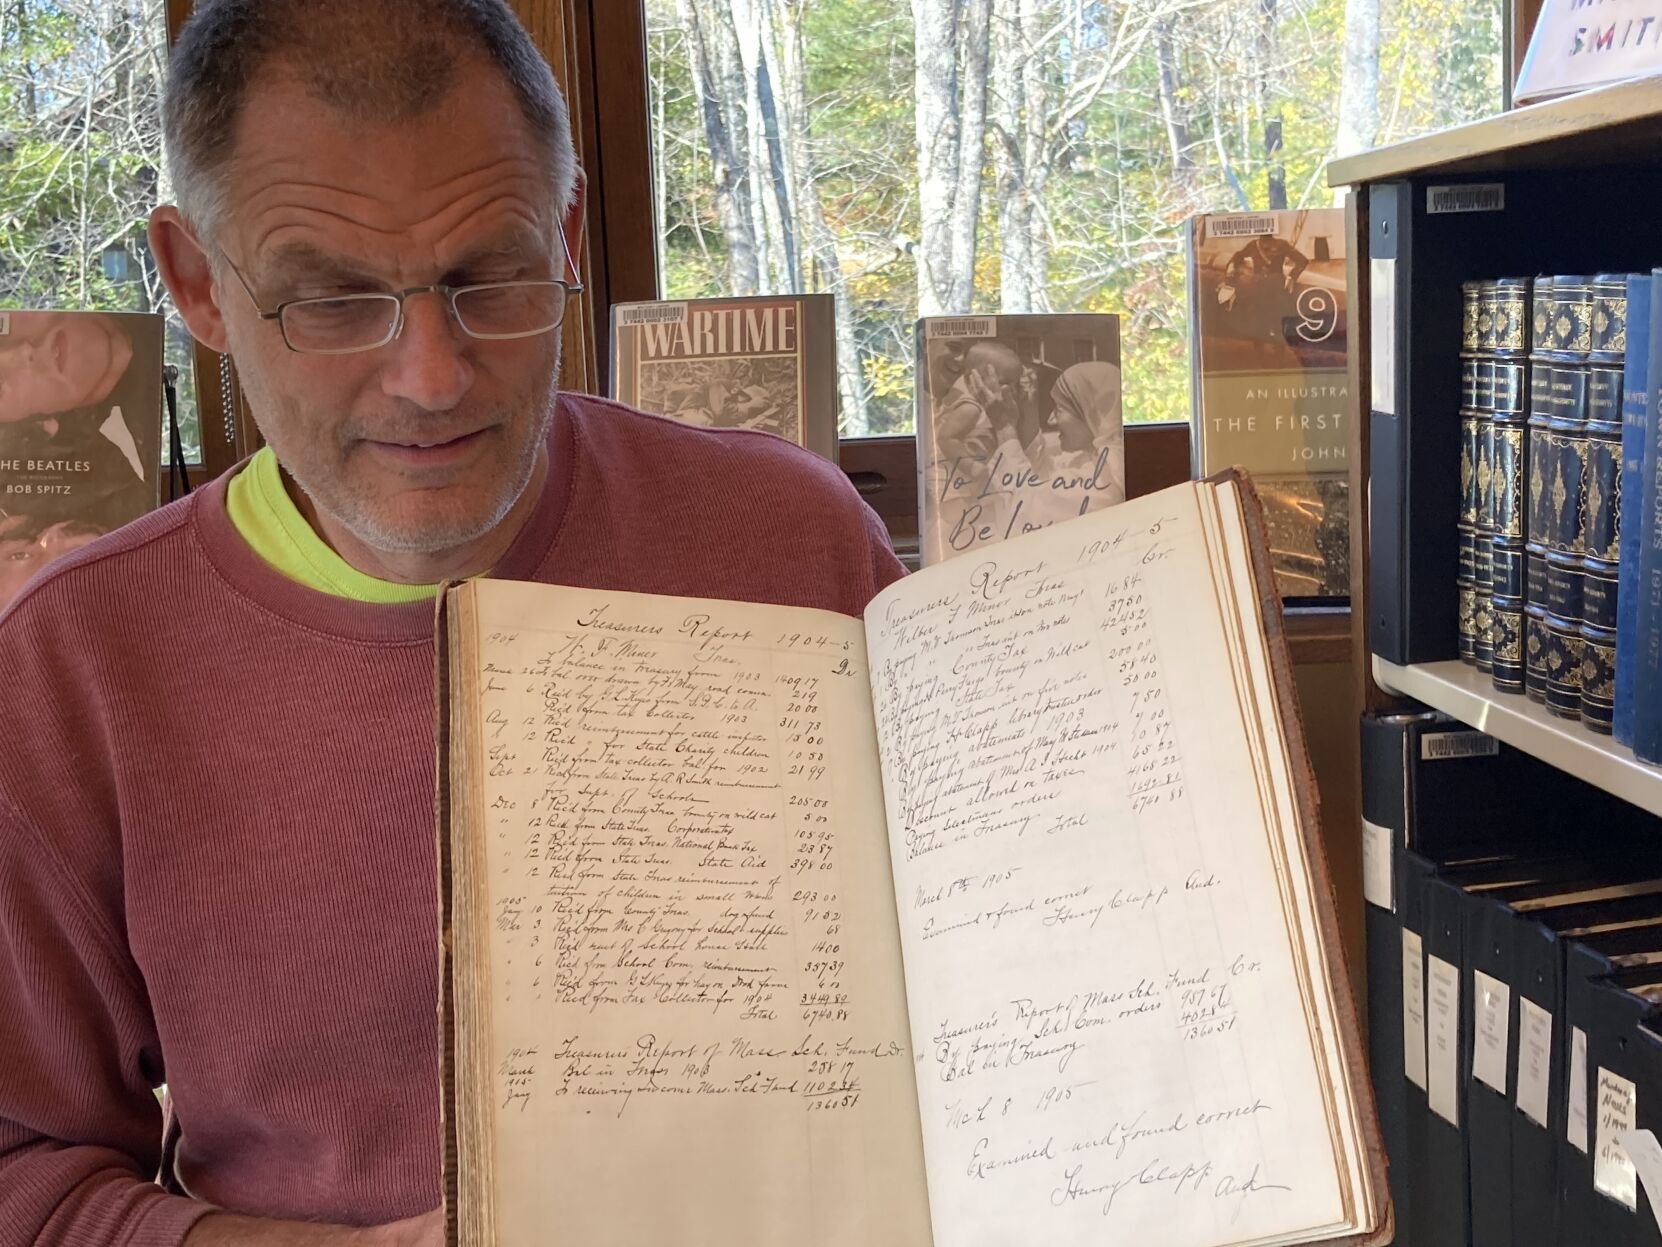 SMITH
THE BEATLES
THE BIOGRAPHY
BOB SPITZ
WARTIME
To Love and
Be Loved
9
AN ILLUSTRA
THE FIRST
JOHN
Treasurers Report 1904-5
1904 W. F. Miner Treas. Dr
To balance in treasury from 1903 1409 17
March 26 To bal over drawn by F. May road comm. 2 19
June 6 Rec'd by G. L. Keyes from S. P. C. to A. 20 00
Rec'd from tax Collector 1903 311 73
Aug 12 Rec'd reimbursement for cattle inspector 15 00
" 12 Rec'd " for State Charity children 10 50
Sept Rec'd from tax collector bal for 1902 21 99
Oct 21 Rec'd from State Treas by A. R. Smith reimbursement
for Supt. of Schools 205 00
Dec 8 Rec'd from County Treas bounty on wild cat 5 00
" 12 Rec'd from State Treas. Corporation tax 105 95
" 12 Rec'd from State Treas. National Bank Tax 23 87
" 12 Rec'd from State Treas. State Aid 398 00
" 12 Rec'd from State Treas reimbursement of
tuition of children in small towns 293 00
1905
Jany 10 Rec'd from County Treas. dog fund 91 52
Mar 3 Rec'd from Mrs C Gregory for School supplies 68
" 3 Rec'd rent of School house 14 00
" 6 Rec'd from School Com. reimbursement 357 39
" 6 Rec'd from G L Keyes for hay on Town farm 6 00
" " Rec'd from Tax Collector for 1904 3449 89
Total 6740.88
1904 Treasurers Report of Mass Sch. Fund Dr.
March Bal in Treas 1903 258 17
1905
Jany To receiving income Mass. Sch Fund 1102 34
1360 51
Treasurers Report 1904-5
Wilber F Miner Treas Cr.
By paying M. V. Thomson Treas 16 84
" " " Treas int on two notes 37 50
By paying County Tax 424 52
bounty on Wild cat 5 00
By paying State Tax 200 00
By paying M. V. Thomson int on five notes 58 40
By paying H. Clapp library trustees order 50 00
By paying abatements 1903 7 50
By paying abatement of May 1904 7 00
By paying abatement of Mrs A. J. 1904
Discount allowed on taxes 65 22
Paying Selectmens orders 4168 22
Balance in Treasury 1692 81
Total 6740 88
March 8th 1905
Examined & found correct
Henry Clapp Aud.
Treasurers Report of Mass Sch. Fund Cr.
By paying Sch. Com. orders 957 67
Bal in Treasury 402 84
1360 51
Mch 8 1905
Examined and found correct
Henry Clapp Aud